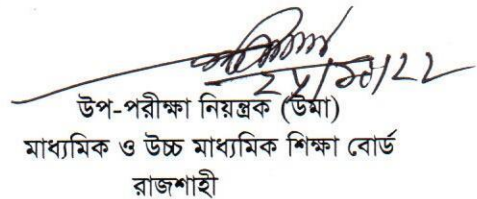 উপ-পরীক্ষা নিয়ন্ত্রক (উমা)
মাধ্যমিক ও উচ্চ মাধ্যমিক শিক্ষা বোর্ড
রাজশাহী